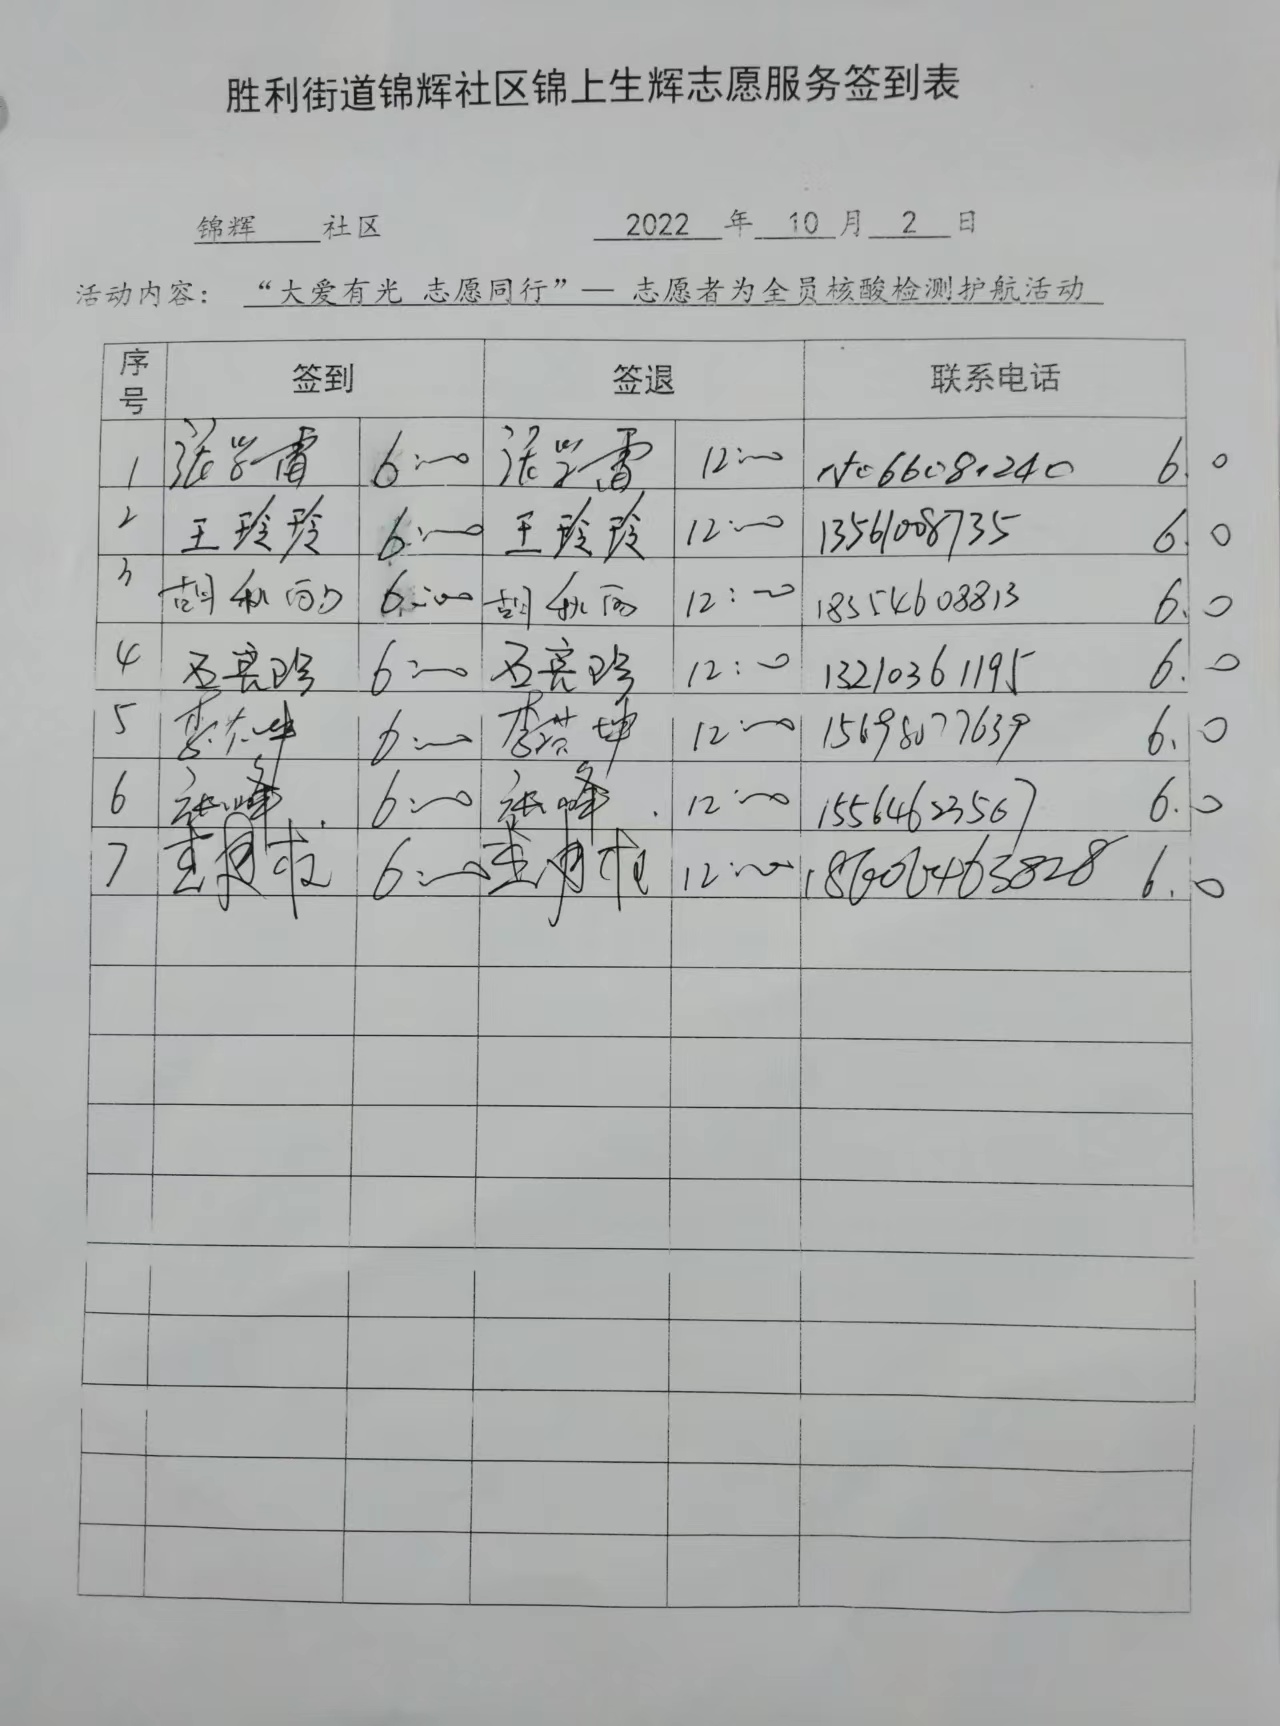 胜利街道锦辉社区锦上生辉志愿服务签到表
锦辉 社区 2022 年 10 月 2 日
活动内容： “大爱有光 志愿同行”— 志愿者为全员核酸检测护航活动
序号 签到 签退 联系电话
1 张学雷 6:00 张学雷 12:00 6.0
2 王玲玲 6:00 王玲玲 12:00 13561008735 6.0
3 胡秋雨 6:00 胡秋雨 12:00 18354608813 6.0
4 石亮珍 6:00 石亮珍 12:00 13210361195 6.0
5 6:00 12:00 15698077639 6.0
6 张峰 6:00 张峰 12:00 15564623567 6.0
7 6:00 12:00 6.0